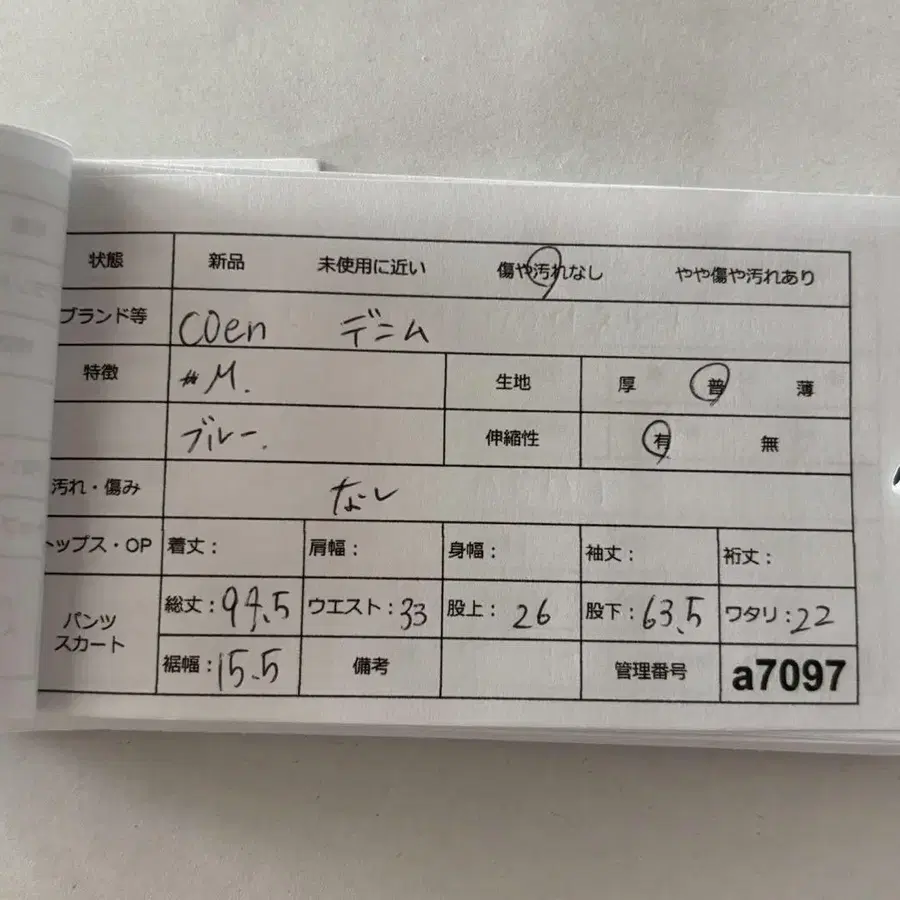 状態 新品 未使用に近い 傷や汚れなし やや傷や汚れあり
ブランド等 coen デニム
特徴 #M. 生地 厚 普 薄
ブルー. 伸縮性 有 無
汚れ・傷み なし
トップス・OP 着丈: 肩幅: 身幅: 袖丈: 裄丈:
パンツ スカート
総丈:94.5 ウエスト:33 股上:26 股下:63.5 ワタリ:22
裾幅:15.5 備考 管理番号 a7097